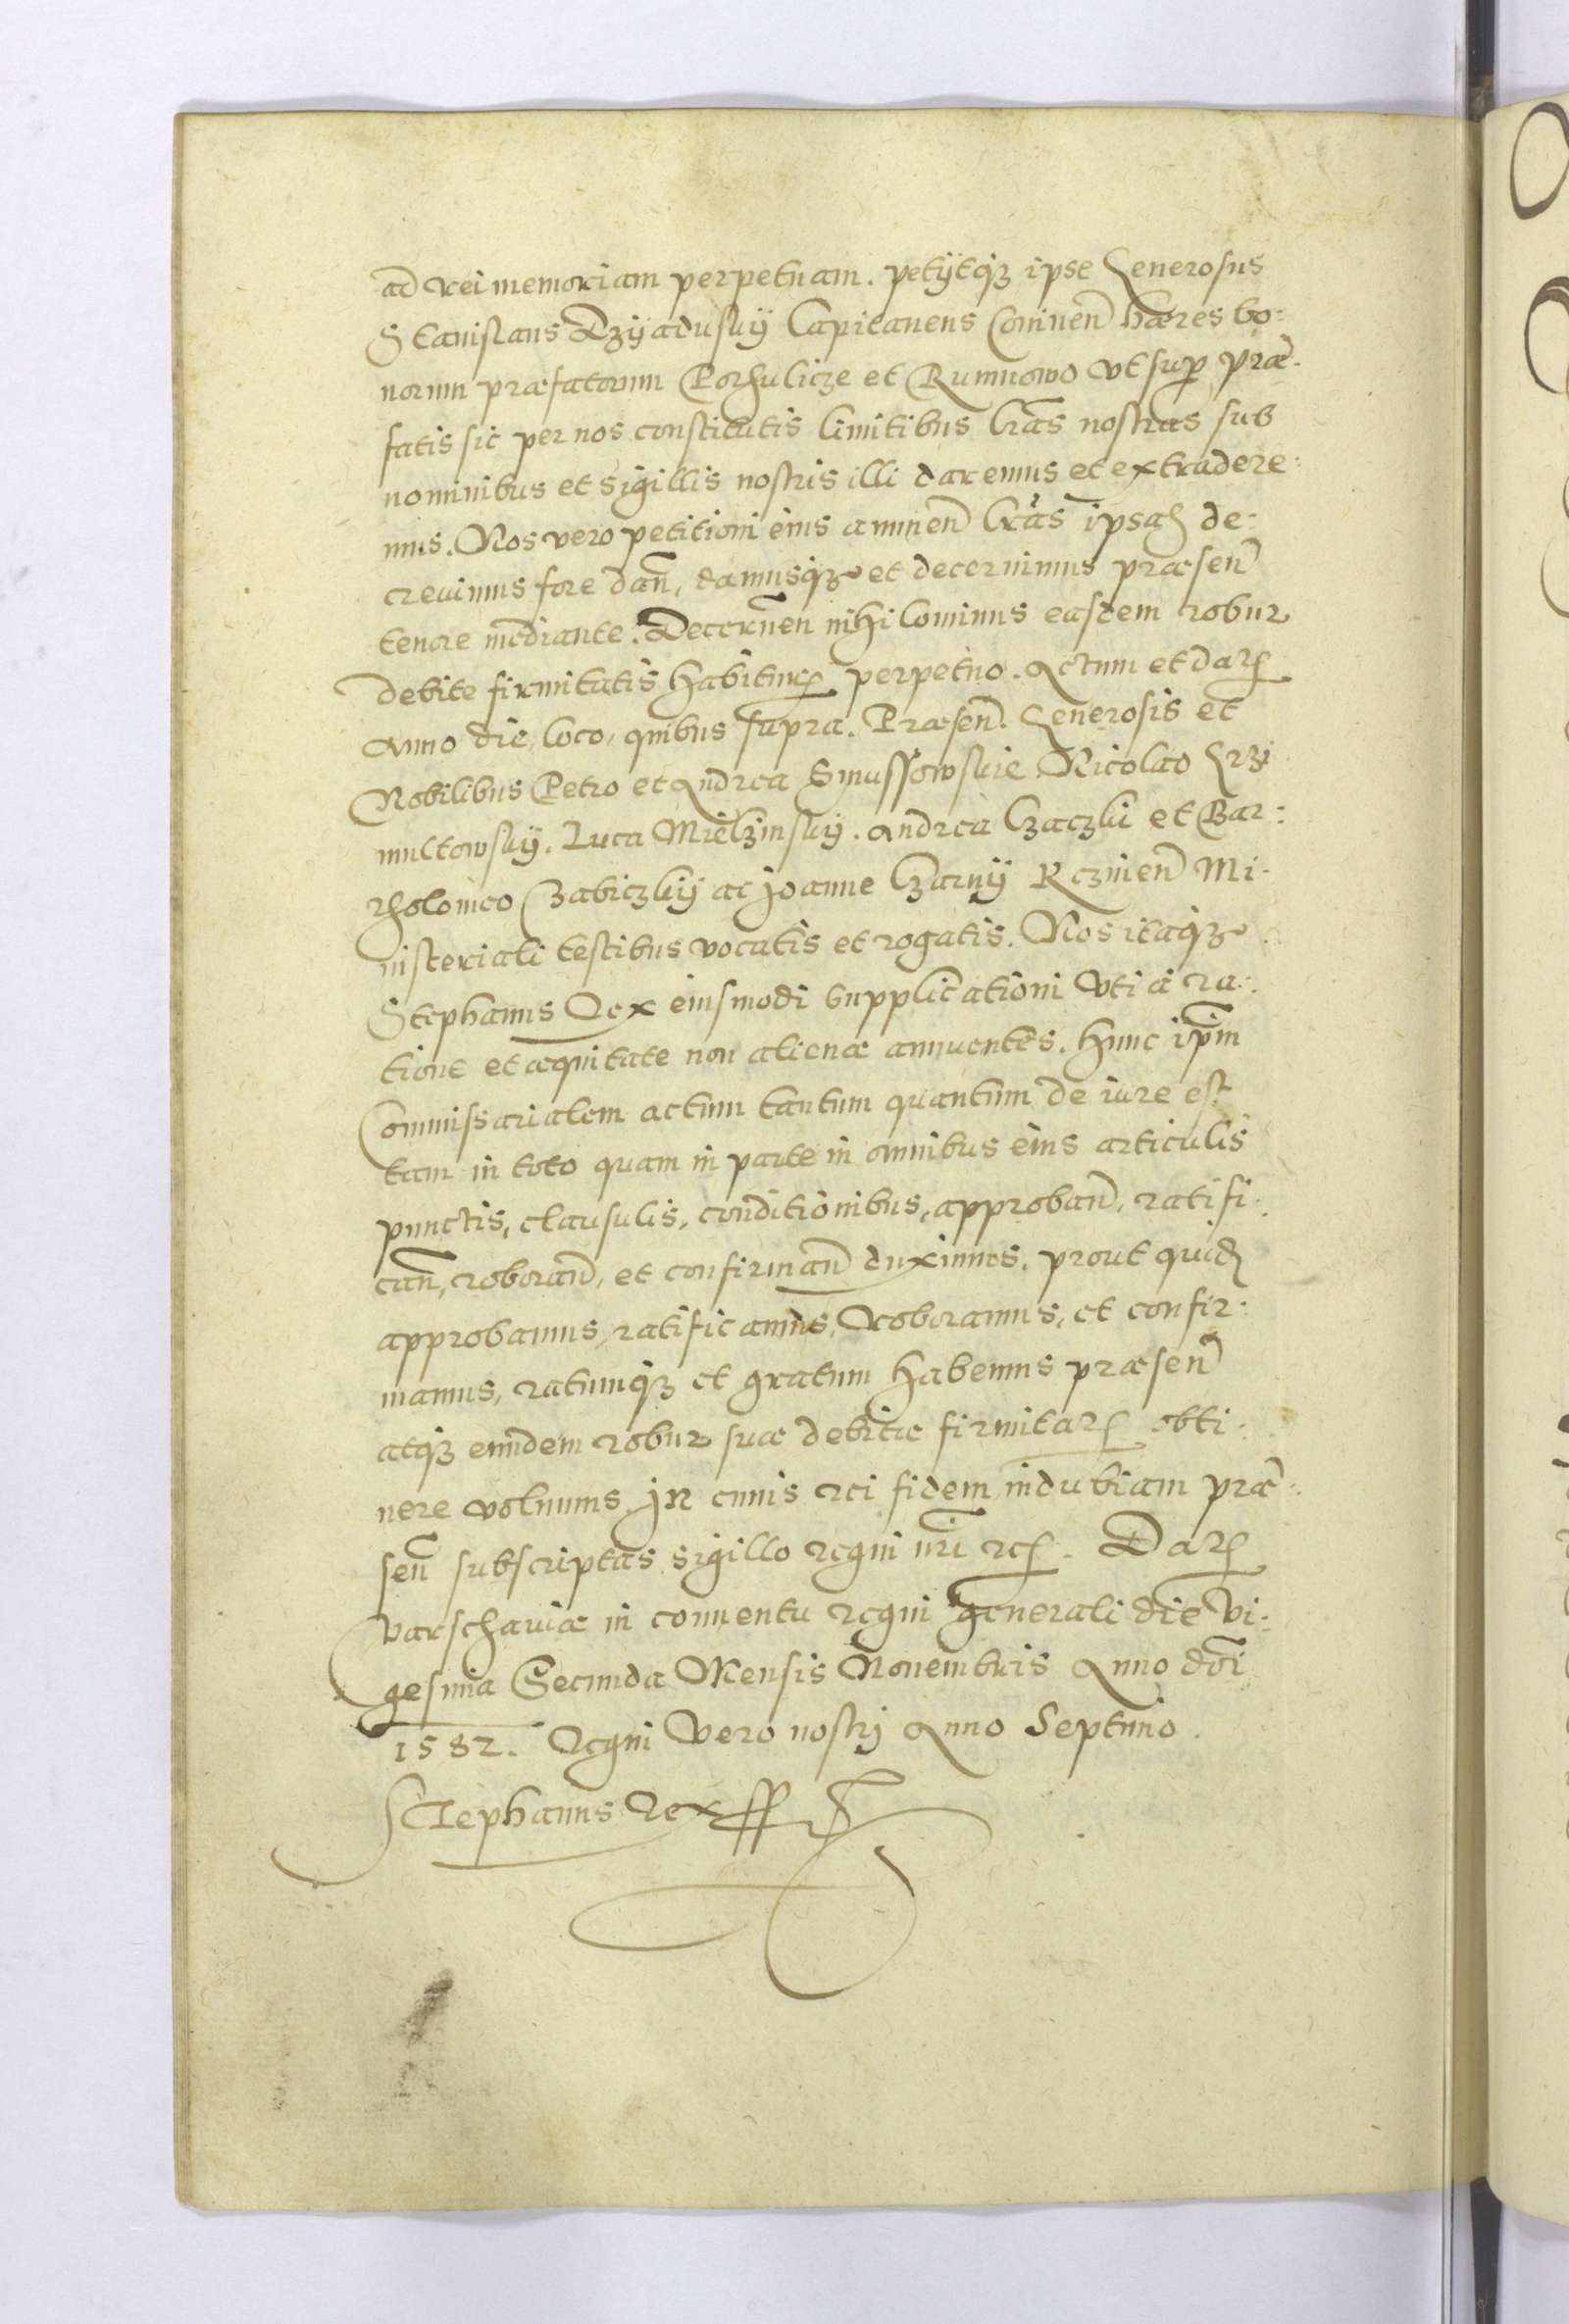 ad rei memoriam perpetuam. petÿtqz ipse Generosus
Stanislaus Dzÿaduskÿ Capitaneus Coninen̄ hæres bo:
norum præfatorum Pothulicze et Rumnowo vt super præ:
fatis sic per nos constitutis limitibus lr̄as nostras sub
nominibus et sigillis nostris illi daremus et extradere:
mus. Nos vero petitioni eius annuen̄ lr̄as ipsas de:
creuimus fore dan̄, damusqz et decernimus præsen̄
tenore mediante. Decernen̄ nihilominus easdem robur
debite firmitatis habituras perpetuo. Actum et dat
anno die, loco, quibus supra. Præsen̄. Generosis et
Nobilibus Petro et Andrea Smussowskie Nicolao Grzi
multowskÿ. Luca Mielzinskÿ. Andrea Czaczki et Bar:
tholomeo Zabiczkÿ ac Joanne Czarnÿ Kcznien̄ Mi:
nisteriali testibus vocatis et rogatis. Nos itaqz
Stephanus Rex eiusmodi supplicationi vti à ra:
tione et æquitate non alienæ annuentes. Hunc ip̄m
Commissarialem actum tantum quantum de iure est
tam in toto quam in parte in omnibus eius articulis
punctis, clausulis, conditionibus, approban̄, ratifi:
can̄, roboran̄, et confirman̄ duximus. prout quid
approbamus, ratificamus, roboramus, et confir:
mamus, ratumqz et gratum habemus præsen̄
atqz eundem robur suæ debitæ firmitat obti:
nere volumus. In cuius rei fidem indubiam præ:
sen̄ subscriptas sigillo regni nr̄i etc. Dat
Varschauiæ in conuentu regni generali die vi:
gesima Secunda Mensis Nouembris Anno dn̄i
1582. Regni vero nostrj Anno Septimo.
Stephanus Rex